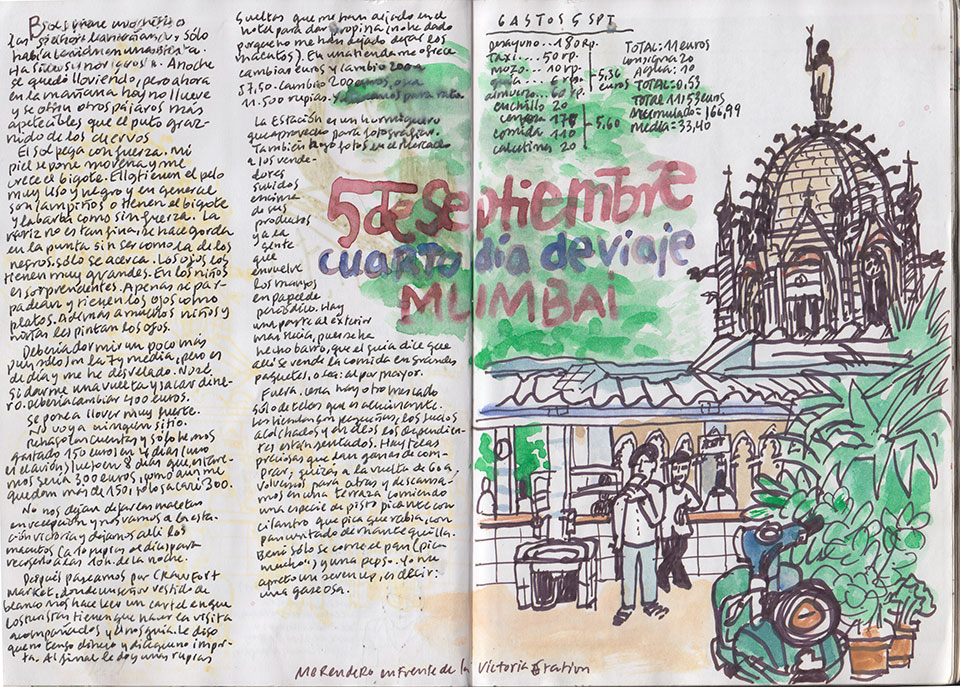 las
había
Ha sido su        . Anoche
se quedó lloviendo, pero ahora
en la mañana hoy no llueve
y se oyen otros pájaros más
apetecibles que el puto graz-
nido de los cuervos
El sol pega con fuerza. mi
piel se pone morena y me
crece el bigote. Ellos tienen el pelo
muy liso y negro y en general
son lampiños o tienen el bigote
y la barba como sin fuerza. La
nariz no es tan fina, se hace gorda
en la punta sin ser como la de los
negros, sólo se acerca. Los ojos los
tienen muy grandes. En los niños
es sorprendente. Apenas se par-
padean y tienen los ojos como
platos. Además a muchos niños y
niñas les pintan los ojos.
Debería dormir un poco más
pues sólo son la 7 y media, pero es
de día y me he desvelado. No sé
si darme una vuelta y sacar dine-
ro. Debería cambiar 400 euros.
Se pone a llover muy fuerte.
No voy a ningún sitio.
Rehago las cuentas y sólo hemos
gastado 150 euros en 4 días (uno
el avión) luego en 8 días que estare-
mos sería 300 euros, como aún me
quedan más de 150, sólo sacaré 300.
No nos dejan dejar las maletas
en recepción y nos vamos a la esta-
ción victoria y dejamos allí los
macutos (a 10 rupias al día) para
recogerlo a las 10h. de la noche.
Después paseamos por CRAWFORT
MARKET, donde un señor vestido de
blanco nos hace leer un cartel en que
los turistas tienen que hacer la visita
acompañados y él nos guía. Le digo
que no tengo dinero y dice que no impor-
ta. Al final le doy unas rupias
sueltas que me han dejado en el
hotel para dar propina (no he dado
porque no me han dejado dejar los
macutos). En una tienda me ofrece
cambiar euros y cambio 200 a
57,50. Cambio 200 euros, o sea
11.500 rupias. y tenemos para rato.
La ESTACIÓN es un hormiguero
que aprovecho para fotografiar.
También hago fotos en el Mercado
a los vende-
dores
subidos
encima
de sus
productos
y a la
gente
que
envuelve
los mangos
en papel de
periódico. Hay
una parte al exterior
más sucia, pues se ha
hecho barro, que el guía dice que
allí se vende la comida en grandes
paquetes, o sea: al por mayor.
Fuera, cena hay otro mercado
sólo de telas que es alucinante.
Las tiendas son pequeñas, los suelos
acolchados y en ellos los dependien-
tes sentados. Hay telas
preciosas que dan ganas de com-
prar, quizás a la vuelta de Goa,
volvemos para atrás y descansa-
mos en una terraza comiendo
una especie de pisto picante con
cilantro que pica que rabia, con
pan untado de mantequilla.
Bené sólo se come el pan ("pica
mucho") y una pepsi. Yo me
aprieto un seven up, es decir:
una gaseosa.
GASTOS 5 SPT
desayuno... 180 Rp.
taxi.... 50 rp.
mozo... 10 rp.
guía... 6 rp.
almuerzo.. 60 rp.
5,36
euros
cuchillo 20
cerveza 175
comida 110
calcetines 20
5,60
TOTAL: 11 euros
consigna 20
Agua: 10
TOTAL: 0,53
TOTAL 11,53 euros
Acumulado = 166,99
media = 33,40
5 de Septiembre
cuarto día de viaje
MUMBAI
MERENDERO enfrente de la Victoria Station